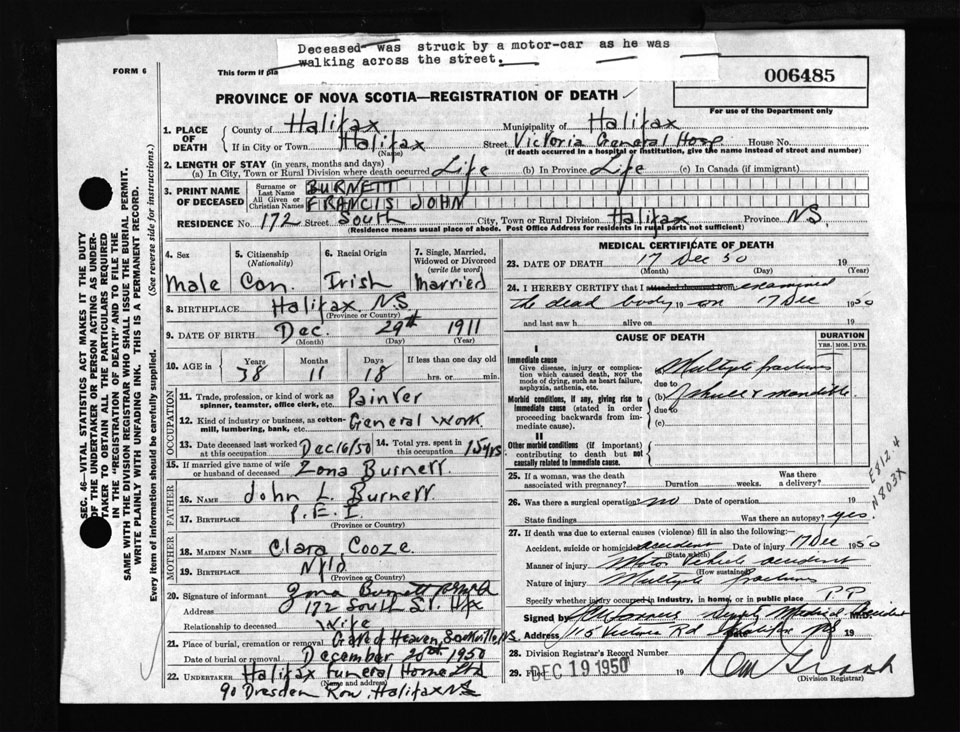 Deceased was struck by a motor-car as he was
walking across the street.
FORM 6
This form if pla
006485
PROVINCE OF NOVA SCOTIA—REGISTRATION OF DEATH
For use of the Department only
1. PLACE OF DEATH
County of Halifax Municipality of Halifax
If in City or Town Halifax Street Victoria General Hosp House No.
(Name) (If death occurred in a hospital or institution, give the name instead of street and number)
2. LENGTH OF STAY (in years, months and days)
(a) In City, Town or Rural Division where death occurred Life (b) In Province Life (c) In Canada (if immigrant)
3. PRINT NAME OF DECEASED
Surname or Last Name BURNETT
All Given or Christian Names FRANCIS JOHN
RESIDENCE No. 172 Street South City, Town or Rural Division Halifax Province NS
(Residence means usual place of abode. Post Office Address for residents in rural parts not sufficient)
4. Sex Male
5. Citizenship (Nationality) Can.
6. Racial Origin Irish
7. Single, Married, Widowed or Divorced (write the word) Married
8. BIRTHPLACE Halifax NS
(Province or Country)
9. DATE OF BIRTH Dec. 29th 1911
(Month) (Day) (Year)
10. AGE in Years 38 Months 11 Days 18 If less than one day old
hrs. or min.
OCCUPATION
11. Trade, profession, or kind of work as spinner, teamster, office clerk, etc. Painter
12. Kind of industry or business, as cotton-mill, lumbering, bank, etc. General Work
13. Date deceased last worked at this occupation Dec 16/50 14. Total yrs. spent in this occupation 15 yrs
15. If married give name of wife or husband of deceased Zona Burnett
FATHER
16. Name John L. Burnett
17. Birthplace P.E.I
(Province or Country)
MOTHER
18. Maiden Name Clara Cooze
19. Birthplace Nfld
(Province or Country)
20. Signature of informant Zona Burnett
Address 172 South St. Hfx
Relationship to deceased Wife
21. Place of burial, cremation or removal Gate of Heaven, Sackville, NS
Date of burial or removal December 20th 1950
22. UNDERTAKER Halifax Funeral Home Ltd
(Name and address)
90 Dresden Row, Halifax NS
MEDICAL CERTIFICATE OF DEATH
23. DATE OF DEATH 17 Dec 50 19
(Month) (Day) (Year)
24. I HEREBY CERTIFY that I attended deceased from examined
the dead body 19 on 17 Dec 1950
and last saw h alive on 19
CAUSE OF DEATH
DURATION
YRS. MOS. DYS.
I
Immediate cause
Give disease, injury or complication which caused death, nor the mode of dying, such as heart failure, asphyxia, asthenia, etc.
Multiple fractures
due to
Morbid conditions, if any, giving rise to immediate cause (stated in order proceeding backwards from immediate cause).
(b) of skull & mandible
due to
(c)
II
Other morbid conditions (if important) contributing to death but not causally related to immediate cause.
25. If a woman, was the death associated with pregnancy? Duration weeks. Was there a delivery?
26. Was there a surgical operation? no Date of operation 19
State findings Was there an autopsy? yes
E812.4
N803X
27. If death was due to external causes (violence) fill in also the following:
Accident, suicide or homicide accident Date of injury 17 Dec 1950
(State which)
Manner of injury Motor Vehicle accident
(How sustained)
Nature of injury Multiple fractures
Specify whether injury occurred in industry, in home, or in public place PP
Signed by M.D.
Address 115 Rd Halifax NS 19
28. Division Registrar's Record Number
29. Filed DEC 19 1950 19
(Division Registrar)
SEC. 46—VITAL STATISTICS ACT MAKES IT THE DUTY
OF THE UNDERTAKER OR PERSON ACTING AS UNDER-
TAKER TO OBTAIN ALL THE PARTICULARS REQUIRED
IN THE "REGISTRATION OF DEATH" AND TO FILE THE
SAME WITH THE DIVISION REGISTRAR WHO SHALL ISSUE THE BURIAL PERMIT.
WRITE PLAINLY WITH UNFADING INK. THIS IS A PERMANENT RECORD.
Every item of information should be carefully supplied. (See reverse side for instructions.)